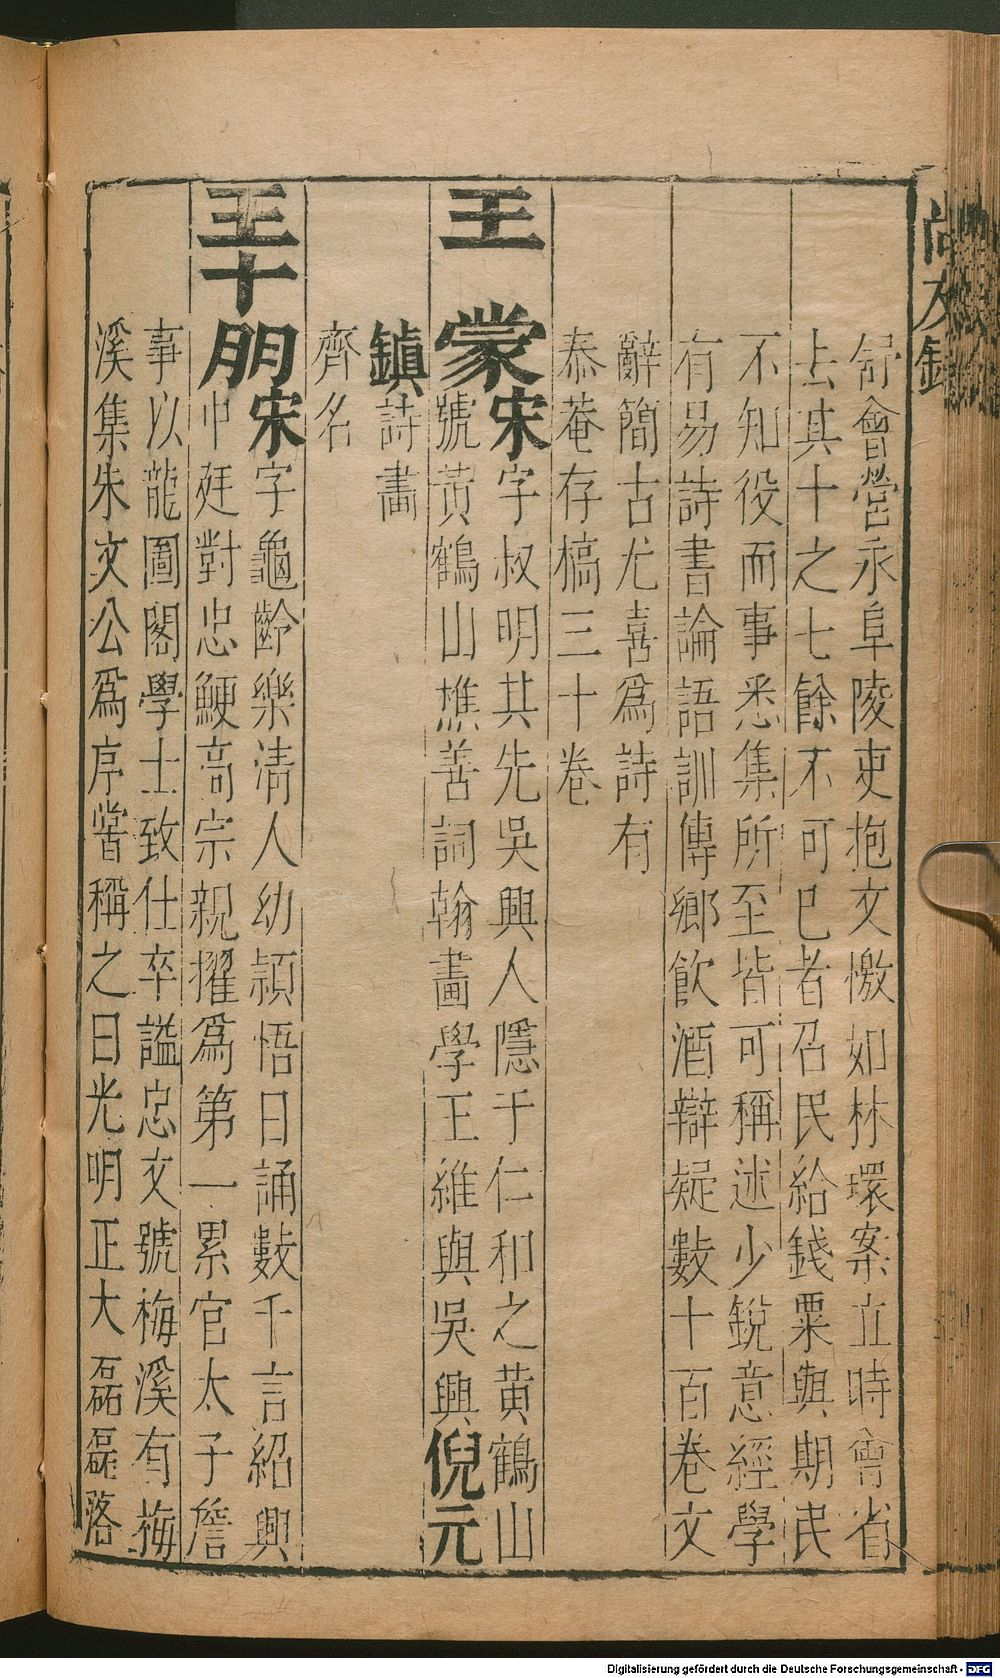 尚友錄
舒會營永阜陵吏抱文檄如林環案立時會省
去其十之七餘不可巳者召民給錢粟與期民
不知役而事悉集所至皆可稱述少銳意經學
有易詩書論語訓傳鄉飲酒辯疑數十百卷文
辭簡古尤喜爲詩有
泰菴存槁三十卷
王蒙宋字叔明其先吳興人隱于仁和之黄鶴山
號黄鶴山樵善詞翰畫學王維與吳興倪元
鎮詩畫
齊名
王十朋宋字龜齡樂清人幼頴悟日誦數千言紹興
中廷對忠鯁高宗親擢爲第一累官太子詹
事以龍圖閣學士致仕卒謚忠文號梅溪有梅
溪集朱文公爲序嘗稱之曰光明正大磊磊落
Digitalisierung gefördert durch die Deutsche Forschungsgemeinschaft - DFG